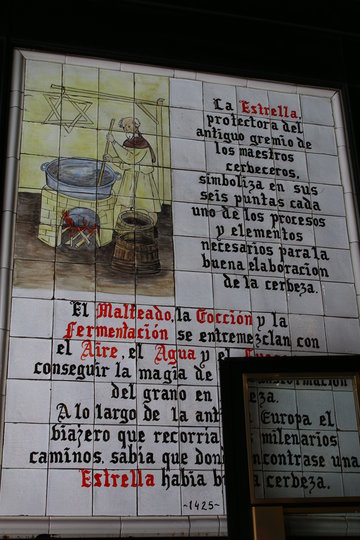 La Estrella,
protectora del
antiguo gremio de
los maestros
cerbeceros,
simboliza en sus
seis puntas cada
uno de los procesos
y elementos
necesarios para la
buena elaboracion
de la cerbeza.
El Malteado, la Cocción y la
Fermentación se entremezclan con
el Aire, el Agua y el
conseguir la magia de
del grano en
A lo largo de la Europa el
biazero que milenarios
caminos, sabia que una
Estrella habia cerbeza.
~1425~